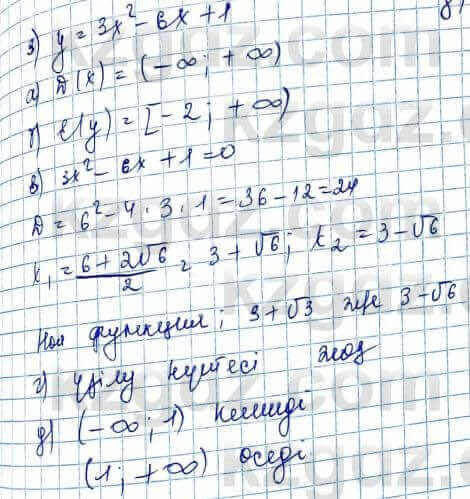 з) y = 3x² - 6x + 1
а) D(x) = (-∞; +∞)
б) E(y) = [-2; +∞)
в) 3x² - 6x + 1 = 0
D = 6² - 4·3·1 = 36 - 12 = 24
x₁ = (6 + 2√6)/2 = 3 + √6; x₂ = 3 - √6
Нөл функция; 3 + √3 және 3 - √6
г) үзілу нүктесі жоқ
д) (-∞; 1) кемиді
(1; +∞) өседі